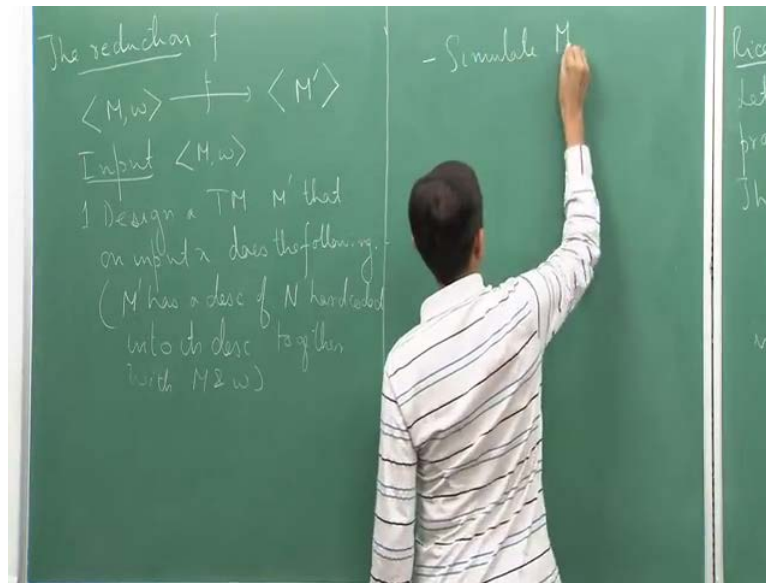 The reduction f
⟨M,w⟩ —f→ ⟨M'⟩
Input ⟨M,w⟩
1 Design a TM M' that
on input x does the following.
(M' has a desc of N' hardcoded
into its desc together
with M & w)
- Simulate M
Rice
Let
pro
Th